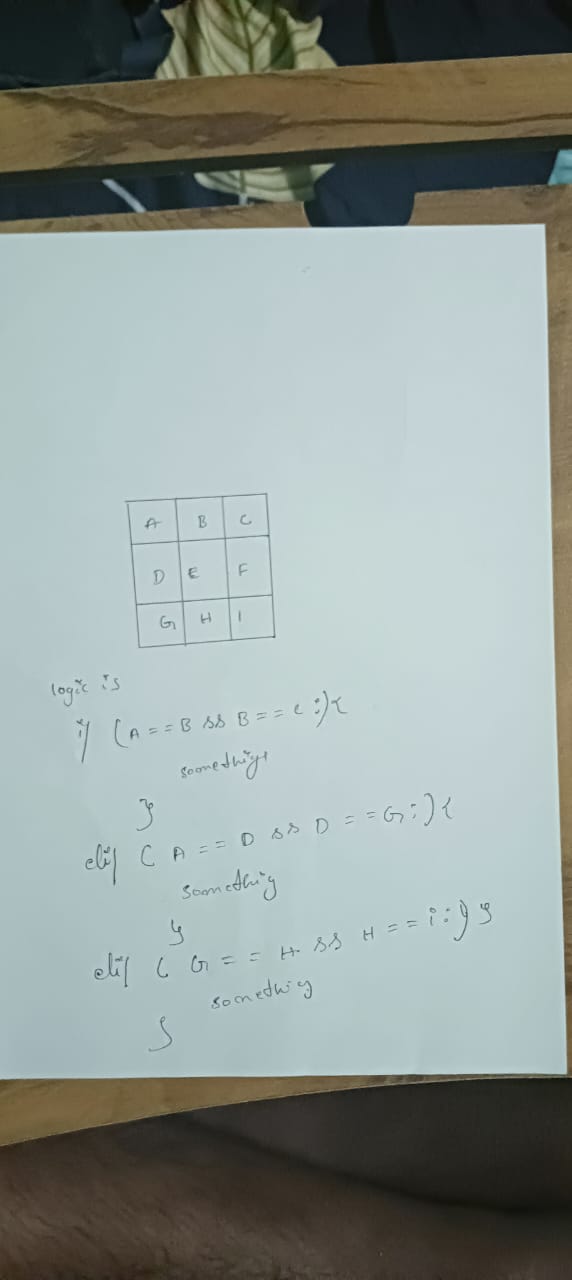 A B C
D E F
G H I
logic is
if (A==B && B==C:){
something
}
elif (A==D && D==G:){
something
}
elif (G==H && H==i:){
something
}